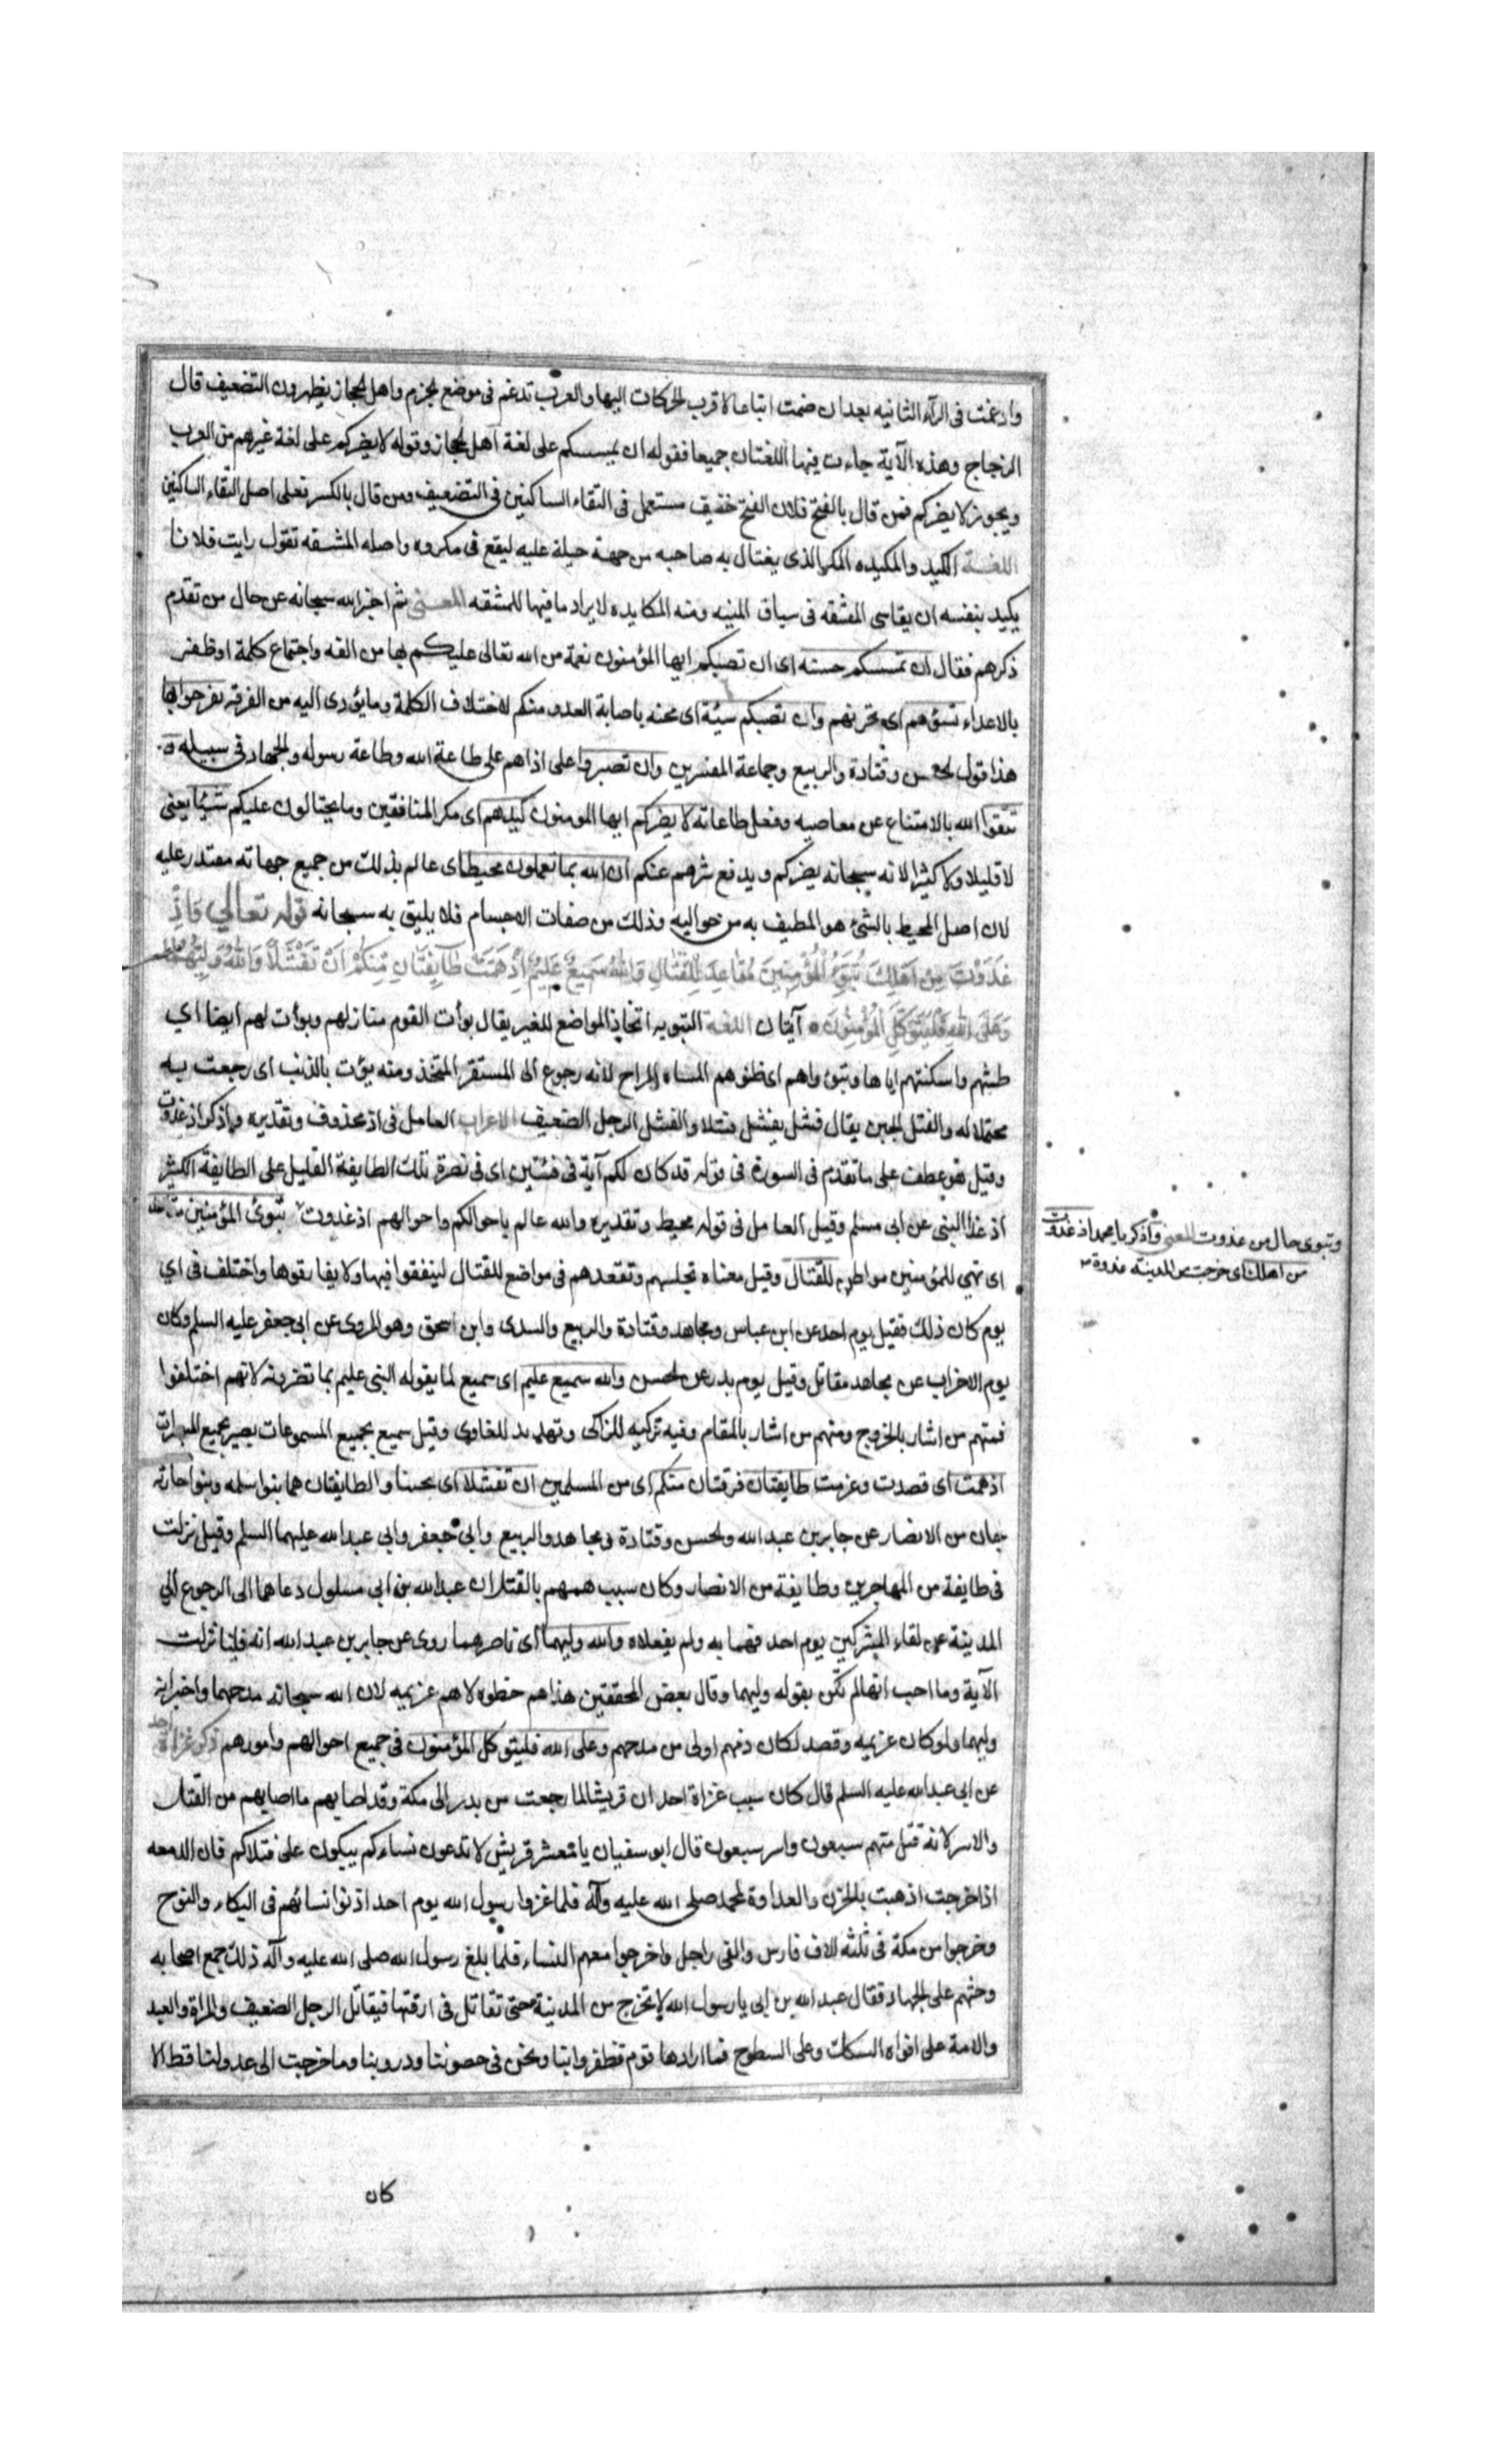 وادغمت فى الرآء الثانيه بعد ان ضمت اتباعا لاقرب الحركات اليها والعرب تدغم فى موضع الجزم واهل الحجاز يظهرون التضعيف قال
الزجاج وهذه الآية جاءت فيها اللغتان جميعا فقوله ان يمسسكم على لغة اهل الحجاز وقوله لا يضركم على لغة غيرهم من العرب
ويجوز لا يضركم فمن قال بالفتح فلان الفتح خفيف مستعمل فى التقاء الساكنين فى التضعيف ومن قال بالكسر فعلى اصل التقاء الساكنين
اللغــة الكيد والمكيده المكر الذى يغتال به صاحبه من جهة حيلة عليه ليقع فى مكروه واصله المشقه تقول رايت فلانا
يكيد بنفسه اى يقاسى المشقه فى سياق المنيه ومنه المكايده لايراد ما فيها للمشقه المعنى ثم اخبر الله سبحانه عن حال من تقدم
ذكرهم فقال ان تمسسكم حسنه اى ان تصبكم ايها المؤمنون نعمة من الله تعالى عليكم بها من الفه واجتماع كلمة او ظفر
بالاعداء تسؤهم اى تحزنهم وان تصبكم سيئة اى محنه باصابة العدو منكم لاختلاف الكلمة وما يؤدى اليه من الفرقه يفرحوا بها
هذا قول الحسن وقتادة والربيع وجماعة المفسرين وان تصبروا على اذاهم على طاعة الله وطاعة رسوله والجهاد فى سبيله و
تتقوا الله بالامتناع عن معاصيه وفعل طاعاته لا يضركم ايها المومنون كيدهم اى مكر المنافقين وما يحتالون عليكم شيئا يعنى
لا قليلا ولا كثيرا لانه سبحانه يضركم ويدفع شرهم عنكم ان الله بما تعملون محيط اى عالم بذلك من جميع جهاته مقتدر عليه
لان اصل المحيط بالشئ هو المطيف به من حواليه وذلك من صفات الاجسام فلا يليق به سبحانه قوله تعالى وَاِذْ
غَدَوْتَ مِنْ اَهْلِكَ تُبَوِّئُ الْمُؤْمِنِينَ مَقَاعِدَ لِلْقِتَالِ وَاللهُ سَمِيعٌ عَلِيمٌ اِذْ هَمَّتْ طَآئِفَتَانِ مِنْكُمْ اَنْ تَفْشَلَا وَاللهُ وَلِيُّهُمَا
وَعَلَى اللهِ فَلْيَتَوَكَّلِ الْمُؤْمِنُونَ آيتان اللغة التبويه اتخاذ المواضع للغير يقال بوأت القوم منازلهم وبوأت لهم ايضا اي
واسكنتهم اياها وتبوءوا هم اى المراح لانه رجوع الى المستقر المتخذ ومنه بؤت بالذنب اى رجعت به
محتملا له والفشل الجبن يقال فشل يفشل فشلا والفشل الرجل الضعيف الاعراب العامل فى اذ محذوف وتقديره واذكر اذ غدوت
وقيل هو عطف على ما تقدم فى السورة فى قوله قد كان لكم آية فى فئتين اى فى نصرة تلك الطايفة القليل على الطايفة الكثير
اذ غدا النبى عن ابى مسلم وقيل العامل فى قوله محيط وتقديره والله عالم باحوالكم واحوالهم اذ غدوت تبوئ المؤمنين مقاعد
اى تهي للمؤمنين مواطن للقتال وقيل معناه تجلسهم وتقعدهم فى مواضع للقتال ليقفوا فيها ولا يفارقوها واختلف فى اي
يوم كان ذلك فقيل يوم احد عن ابن عباس ومجاهد وقتادة والربيع والسدى وابن اسحق وهو المروى عن ابى جعفر عليه السلم وكان
يوم الاحزاب عن مجاهد مقاتل وقيل يوم بدر عن الحسن والله سميع عليم اى سميع لما يقوله النبى عليم بما تضرونه لانهم اختلفوا
فمنهم من اشار بالخروج ومنهم من اشار بالمقام وفيه تزكيه للزاكى وتهديد للغاوى وقيل سميع بجميع المسموعات بصير بجميع المبصرات
اذ همت اى قصدت وعزمت طايفتان فرقتان منكم اى من المسلمين ان تفشلا اى تجبنا والطايفتان هما بنوا سلمه وبنوا حارثه
حيان من الانصار عن جابر بن عبد الله والحسن وقتادة ومجاهد والربيع وابى جعفر وابى عبد الله عليهما السلم وقيل نزلت
فى طايفة من المهاجرين وطايفة من الانصار وكان سبب همهم بالفشل ان عبد الله بن ابى سلول دعاهما الى الرجوع الي
المدينة عن لقاء المشركين يوم احد فهما به ولم يفعلاه والله وليهما اى ناصرهما روى عن جابر بن عبد الله انه فينا نزلت
الآية وما احب انها لم تكن بقوله وليهما وقال بعض المحققين هذا هم خطوه لا هم عزيمه لان الله سبحانه مدحهما واخبر انه
وليهما ولو كان عزيمه وقصد لكان ذمهم اولى من مدحهم وعلى الله فليتوكل المؤمنون فى جميع احوالهم وامورهم ذكر غزاة احد
عن ابى عبد الله عليه السلم قال كان سبب غزاة احد ان قريشا لما رجعت من بدر الى مكة وقد اصابهم ما اصابهم من القتل
والاسر لانه قتل منهم سبعون واسر سبعون قال ابو سفيان يا معشر قريش لا تدعون نساءكم يبكون على قتلاكم فان الدمعه
اذا خرجت اذهبت بالحزن والعداوة لمحمد صلى الله عليه وآله فلما غزوا رسول الله يوم احد اذنوا نسائهم فى البكاء والنوح
وخرجوا من مكة فى ثلثه الاف فارس والفى راجل واخرجوا معهم النساء فلما بلغ رسول الله صلى الله عليه وآله ذلك جمع اصحابه
وحثهم على الجهاد فقال عبد الله بن ابى يا رسول الله لا تخرج من المدينة حتى نقاتل فى ازقتها فيقاتل الرجل الضعيف والمراة والعبد
والامة على افواه السكك وعلى السطوح فما ارادها قوم فظفروا بنا ونحن فى حصوننا ودروبنا وما خرجت الى عدو لنا قط الا
كان
وتبوى حال من غدوت المعنى واذكر يا محمد اذ غدوت
من اهلك اى خرجت من المدينه غدوة